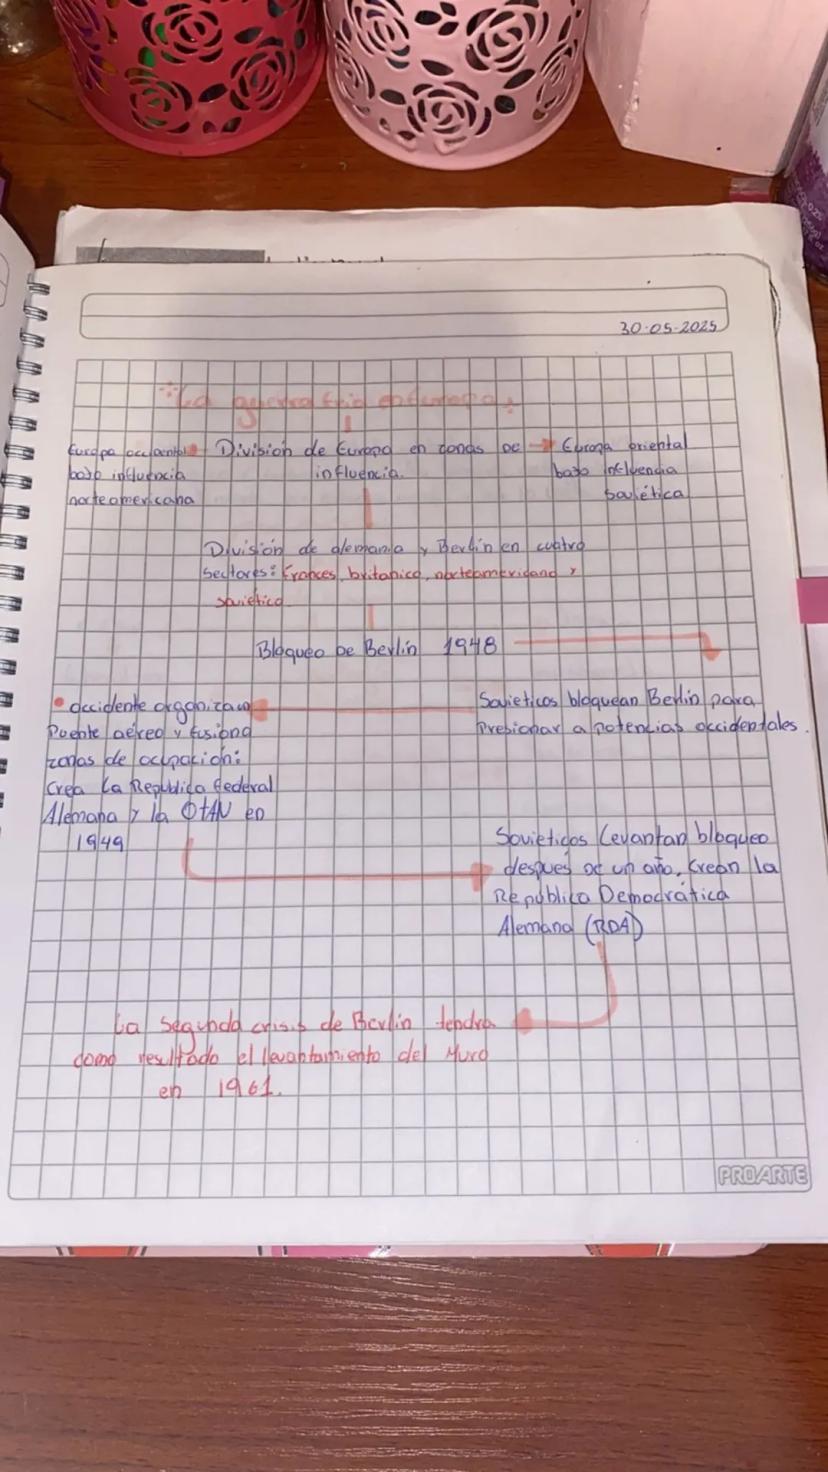 30-05-2025
La guerra fria en Europa:
Europa occidental
bajo influencia
norteamericana
División de Europa en zonas de
influencia.
Europa oriental
bajo influencia
soviética
División de alemania y Berlín en cuatro
Sectores: Frances, britanico, norteamericano y
sovietico
Bloqueo de Berlín 1948
Sovieticos bloquean Berlín para
Presionar a potencias occidentales.
• occidente organizaun
Puente aéreo y fusiona
zonas de ocupación:
Crea La República Federal
Alemana y la OtAN en
1949
Sovieticos Levantan bloqueo
después de un año, Crean la
República Democrática
Alemana (RDA)
La Segunda crisis de Berlin tendra
como resultado el levantamiento del Muro
en 1961.
PROARTE